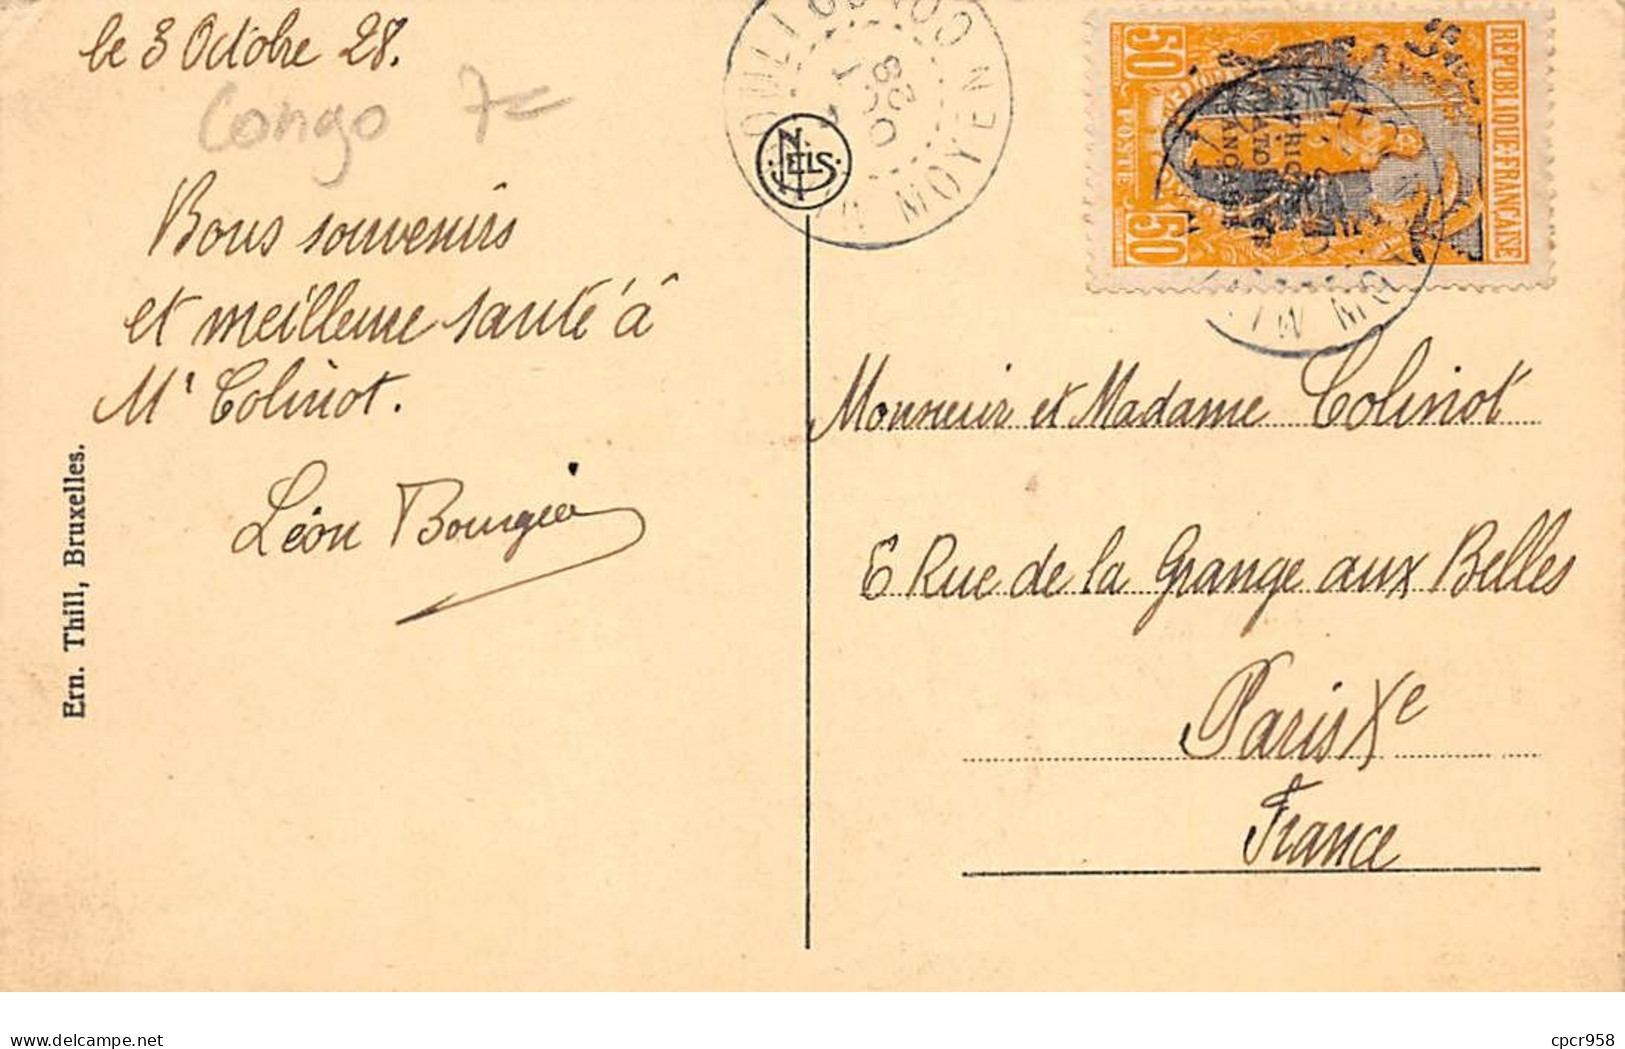 le 3 Octobre 28.
Congo 7=
Bons souvenirs
et meilleure santé à
Mr Colinot.
Léon
Ern. Thill, Bruxelles.
NELS
CONGO
MOYEN
RÉPUBLIQUE FRANÇAISE
50 POSTE 50
Monsieur et Madame Colinot
6 Rue de la Grange aux Belles
Paris Xe
France
delcampe.net
cpcr958